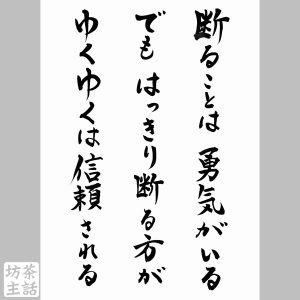 断ることは 勇気がいる
でも はっきり断る方が
ゆくゆくは信頼される
茶話
坊主